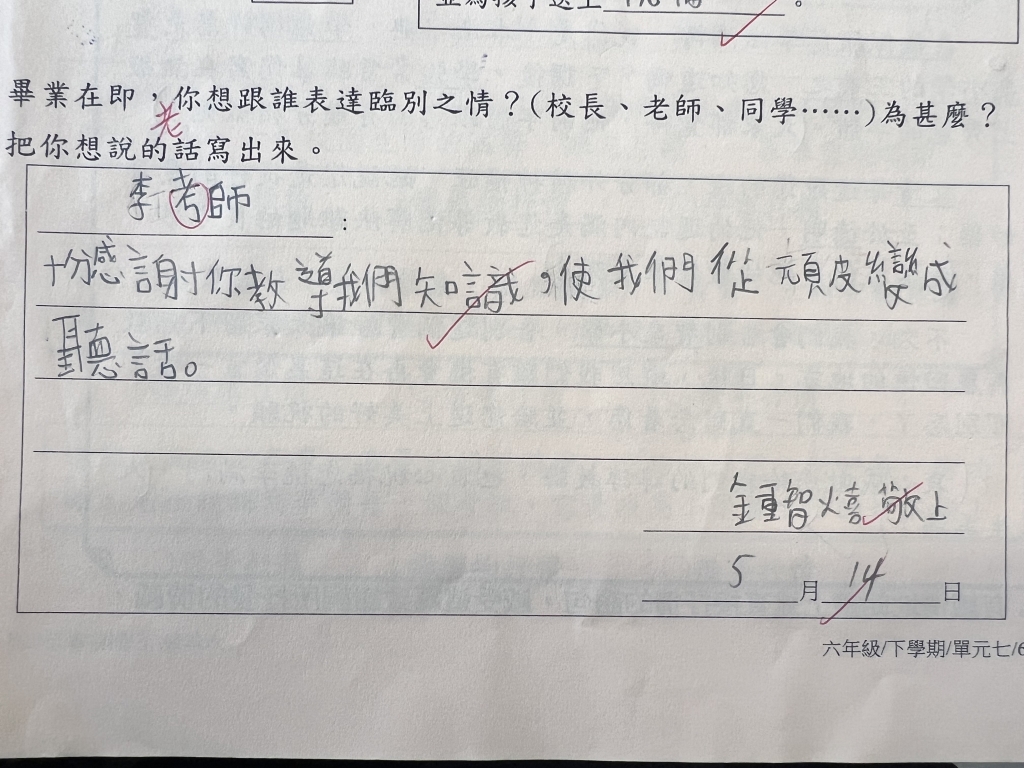 並為孩子送上
。
畢業在即，你想跟誰表達臨別之情？(校長、老師、同學……)為甚麼？
老
把你想說的話寫出來。
李考師：
十分感謝你教導我們知識，使我們從頑皮變成
聽話。
鍾智熺 敬上
5月14日
六年級/下學期/單元七/6